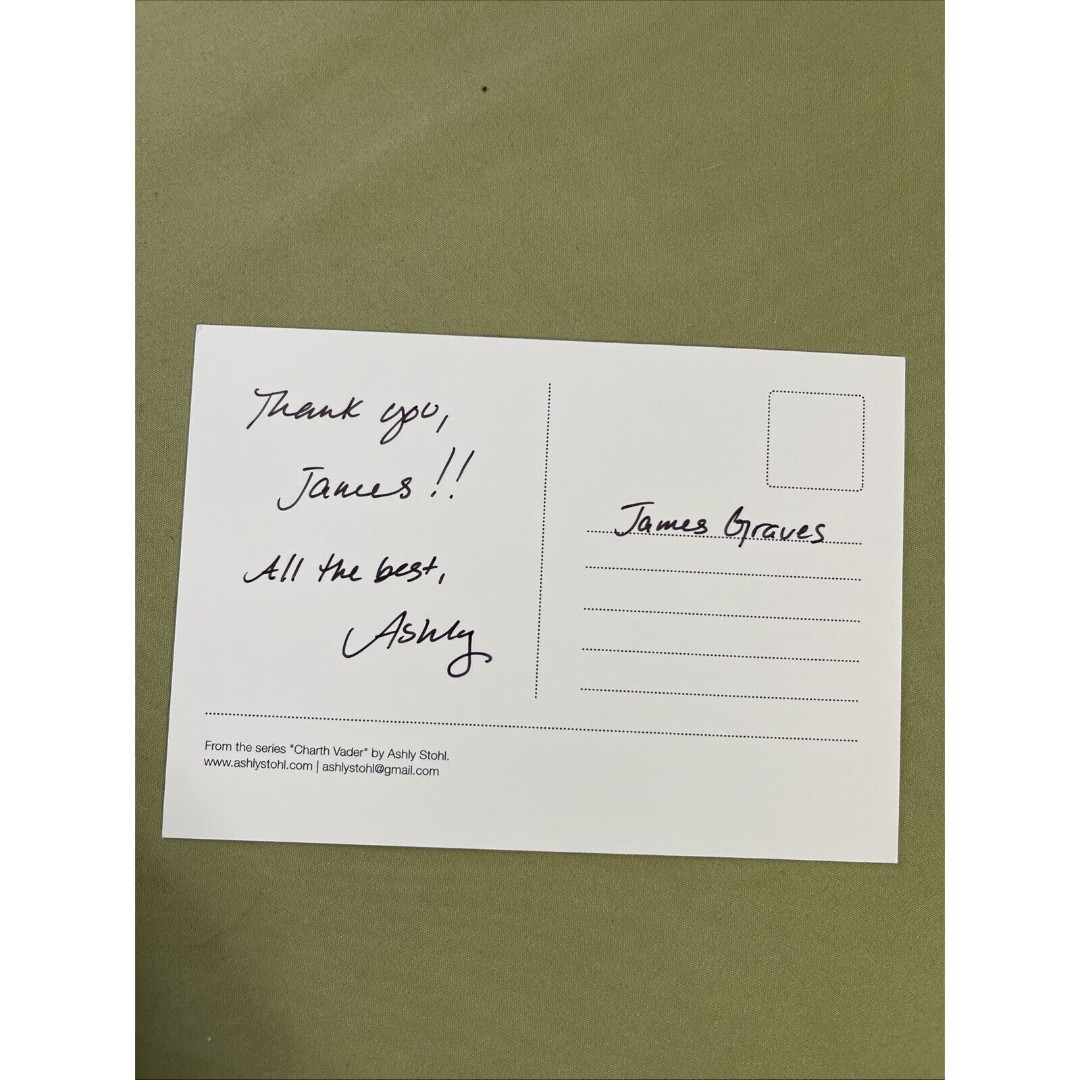 Thank you,
James!!
All the best,
Ashly
James Graves
From the series "Charth Vader" by Ashly Stohl.
www.ashlystohl.com | ashlystohl@gmail.com